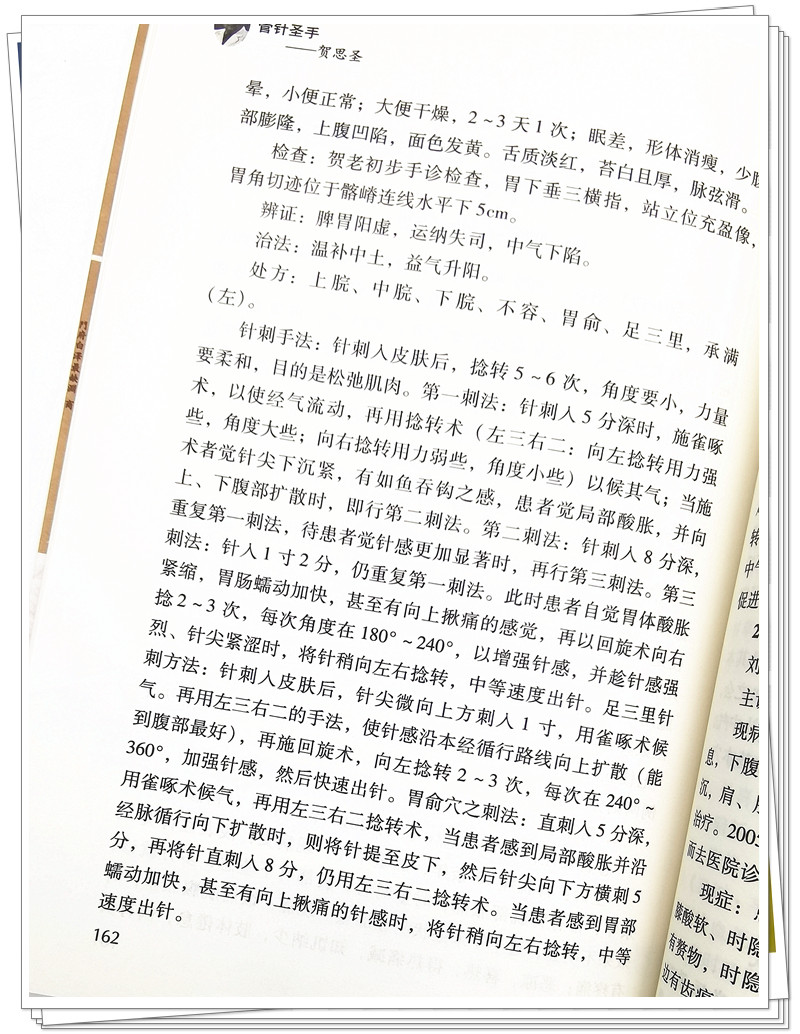 管针圣手
——贺思圣
晕，小便正常；大便干燥，2～3天1次；眠差，形体消瘦，少腹
部膨隆，上腹凹陷，面色发黄。舌质淡红，苔白且厚，脉弦滑。
检查：贺老初步手诊检查，胃下垂三横指，站立位充盈像，
胃角切迹位于髂嵴连线水平下5cm。
辨证：脾胃阳虚，运纳失司，中气下陷。
治法：温补中土，益气升阳。
处方：上脘、中脘、下脘、不容、胃俞、足三里，承满
（左）。
针刺手法：针刺入皮肤后，捻转5～6次，角度要小，力量
要柔和，目的是松弛肌肉。第一刺法：针刺入5分深时，施雀啄
术，以使经气流动，再用捻转术（左三右二：向左捻转用力强
些，角度大些；向右捻转用力弱些，角度小些）以候其气；当施
术者觉针尖下沉紧，有如鱼吞钩之感，患者觉局部酸胀，并向
上、下腹部扩散时，即行第二刺法。第二刺法：针刺入8分深，
重复第一刺法，待患者觉针感更加显著时，再行第三刺法。第三
刺法：针入1寸2分，仍重复第一刺法。此时患者自觉胃体酸胀
紧缩，胃肠蠕动加快，甚至有向上揪痛的感觉，再以回旋术向右
捻2～3次，每次角度在180°～240°，以增强针感，并趁针感强
烈、针尖紧涩时，将针稍向左右捻转，中等速度出针。足三里针
刺方法：针刺入皮肤后，针尖微向上方刺入1寸，用雀啄术候
气。再用左三右二的手法，使针感沿本经循行路线向上扩散（能
到腹部最好），再施回旋术，向左捻转2～3次，每次在240°～
360°，加强针感，然后快速出针。胃俞穴之刺法：直刺入5分深，
用雀啄术候气，再用左三右二捻转术，当患者感到局部酸胀并沿
经脉循行向下扩散时，则将针提至皮下，然后针尖向下方横刺5
分，再将针直刺入8分，仍用左三右二捻转术。当患者感到胃部
蠕动加快，甚至有向上揪痛的针感时，将针稍向左右捻转，中等
速度出针。
162
转
中气
促进
2
刘
主诉
现病
息，下腹
沉，肩、
治疗。2005
而去医院诊
现症：
膝酸软、时隐
有赘物，时隐
边有齿痕